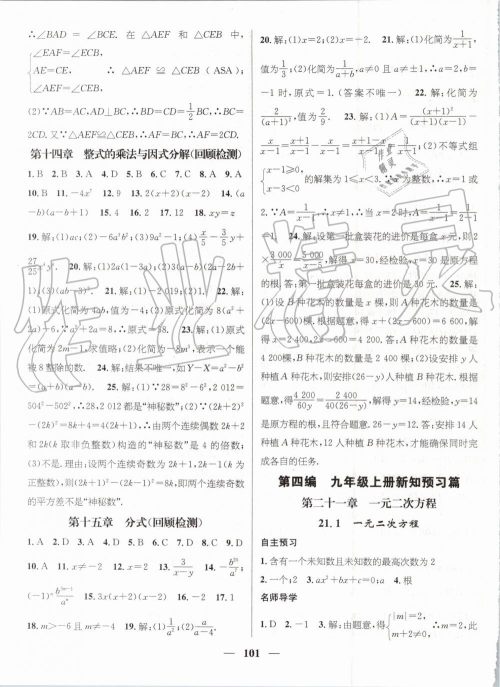 ∴∠BAD = ∠BCE. 在 △AEF 和 △CEB 中,
∠EAF=∠ECB,
AE=CE, ∴ △AEF ≌ △CEB (ASA);
∠AEF=∠CEB,
(2)∵AB=AC,AD⊥BC,∴BD=CD=1/2BC,∴BC=
2CD.又∵△AEF≌△CEB,∴AF=BC,∴AF=2CD.
第十四章 整式的乘法与因式分解(回顾检测)
1. B 2. B 3. B 4. C 5. B 6. A 7. C 8. C 9. A
10. B 11. −4x² 12. 9 13. 2(x+2)(x−2) 14. (a
−b)(a−b+1) 15. 4 16. 2 17. 12 18. xy=z
19. 解:(1)ac;(2)−6a²b²;(3)9a²−1;(4)
20. 解:(1)2a(1−3a)
1);(3)ab(ab−3)². 21. 解:(1)2 019;(2)1. 22. 解:
24. 解:结果不唯一,如Y−X=a²−b²
=(a+b)(a−b). 25. 解:(1)∵28=8²−6²,2 012=
504²−502²,∴28,2 012都是“神秘数”;(2)∵(2k+2)²−
(2k)²=8k+4=4(2k+1),∴由两个连续偶数 2k+2
和2k(k取非负整数)构造的“神秘数”是 4 的倍数;
(3)不是.理由:设两个连续奇数为2k+1和2k−1(k为
正整数),则(2k+1)²−(2k−1)²=8k,即两个连续奇数的
平方差不是“神秘数”.
第十五章 分式(回顾检测)
1. A 2. D 3. D 4. B 5. A 6. D 7. D 8. D 9. D
10. A 11. x≠−2 12. x=2 13. 3/(x−y) 14. −2 15.
16. −2 17. 1
18. m>−6且m≠−4 19. 解:(1)1/a²;(2)a/(a−4).
20. 解:(1)x=2;(2)x=−2. 21. 解:(1)化简为1/(x+1),
值为1/3;(2)化简为1/(a+b),a≠0且a≠±1,∴当a=2,b=
−1时,原式=1.(答案不唯一) 22. 解:化简为
2/(a+1)²,值为2/9. 23. 解:(1)A=(x+1)²/((x+1)(x−1))−
x/(x−1)=(x+1)/(x−1)−x/(x−1)=1/(x−1);(2)不等式组
x−1≥0,
x−3<0
的解集为1≤x<3.∵x为整数,∴x=1或
24. 解:设第一批盒装花的进价是每盒x元,则
2×3 000/x=5 000/(x−5),解得x=30,经检验,x=30是原方程
的根.答:第一批盒装花每盒的进价是 30 元. 25. 解:
(1)设 B 种花木的数量是 x 棵,则 A 种花木的数量是
(2x−600)棵.根据题意,得x+(2x−600)=6 600,解得
x=2 400,2x−600=4 200.答:A 种花木的数量是
4 200棵,B 种花木的数量是 2 400 棵;(2)设安排 y 人
种植 A 种花木,则安排(26−y)人种植 B 种花木.根据
题意,得4 200/60y=2 400/40(26−y).解得y=14,经检验,y=14 是
原方程的根,且符合题意.26−y=12.答:安排 14 人种
植 A 种花木,12 人种植 B 种花木,才能确保同时完成
各自的任务.
第四编 九年级上册新知预习篇
第二十一章 一元二次方程
21.1 一元二次方程
自主预习
1. 含有一个未知数且未知数的最高次数为2
2. 一个;2 3. ax²+bx+c=0 4. 根
名师导学
1. D 2. −1 3. 解:由题意,得
|m|=2,
m+2≠0,
∴m=2.
101